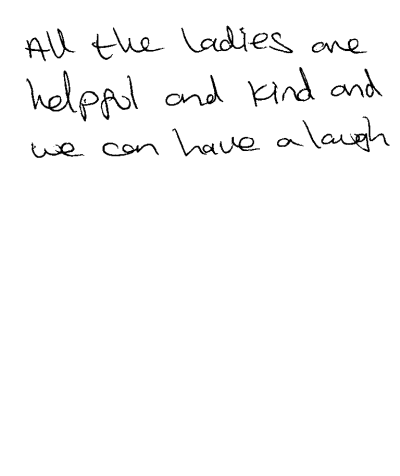 All the ladies are
helpful and kind and
we can have a laugh